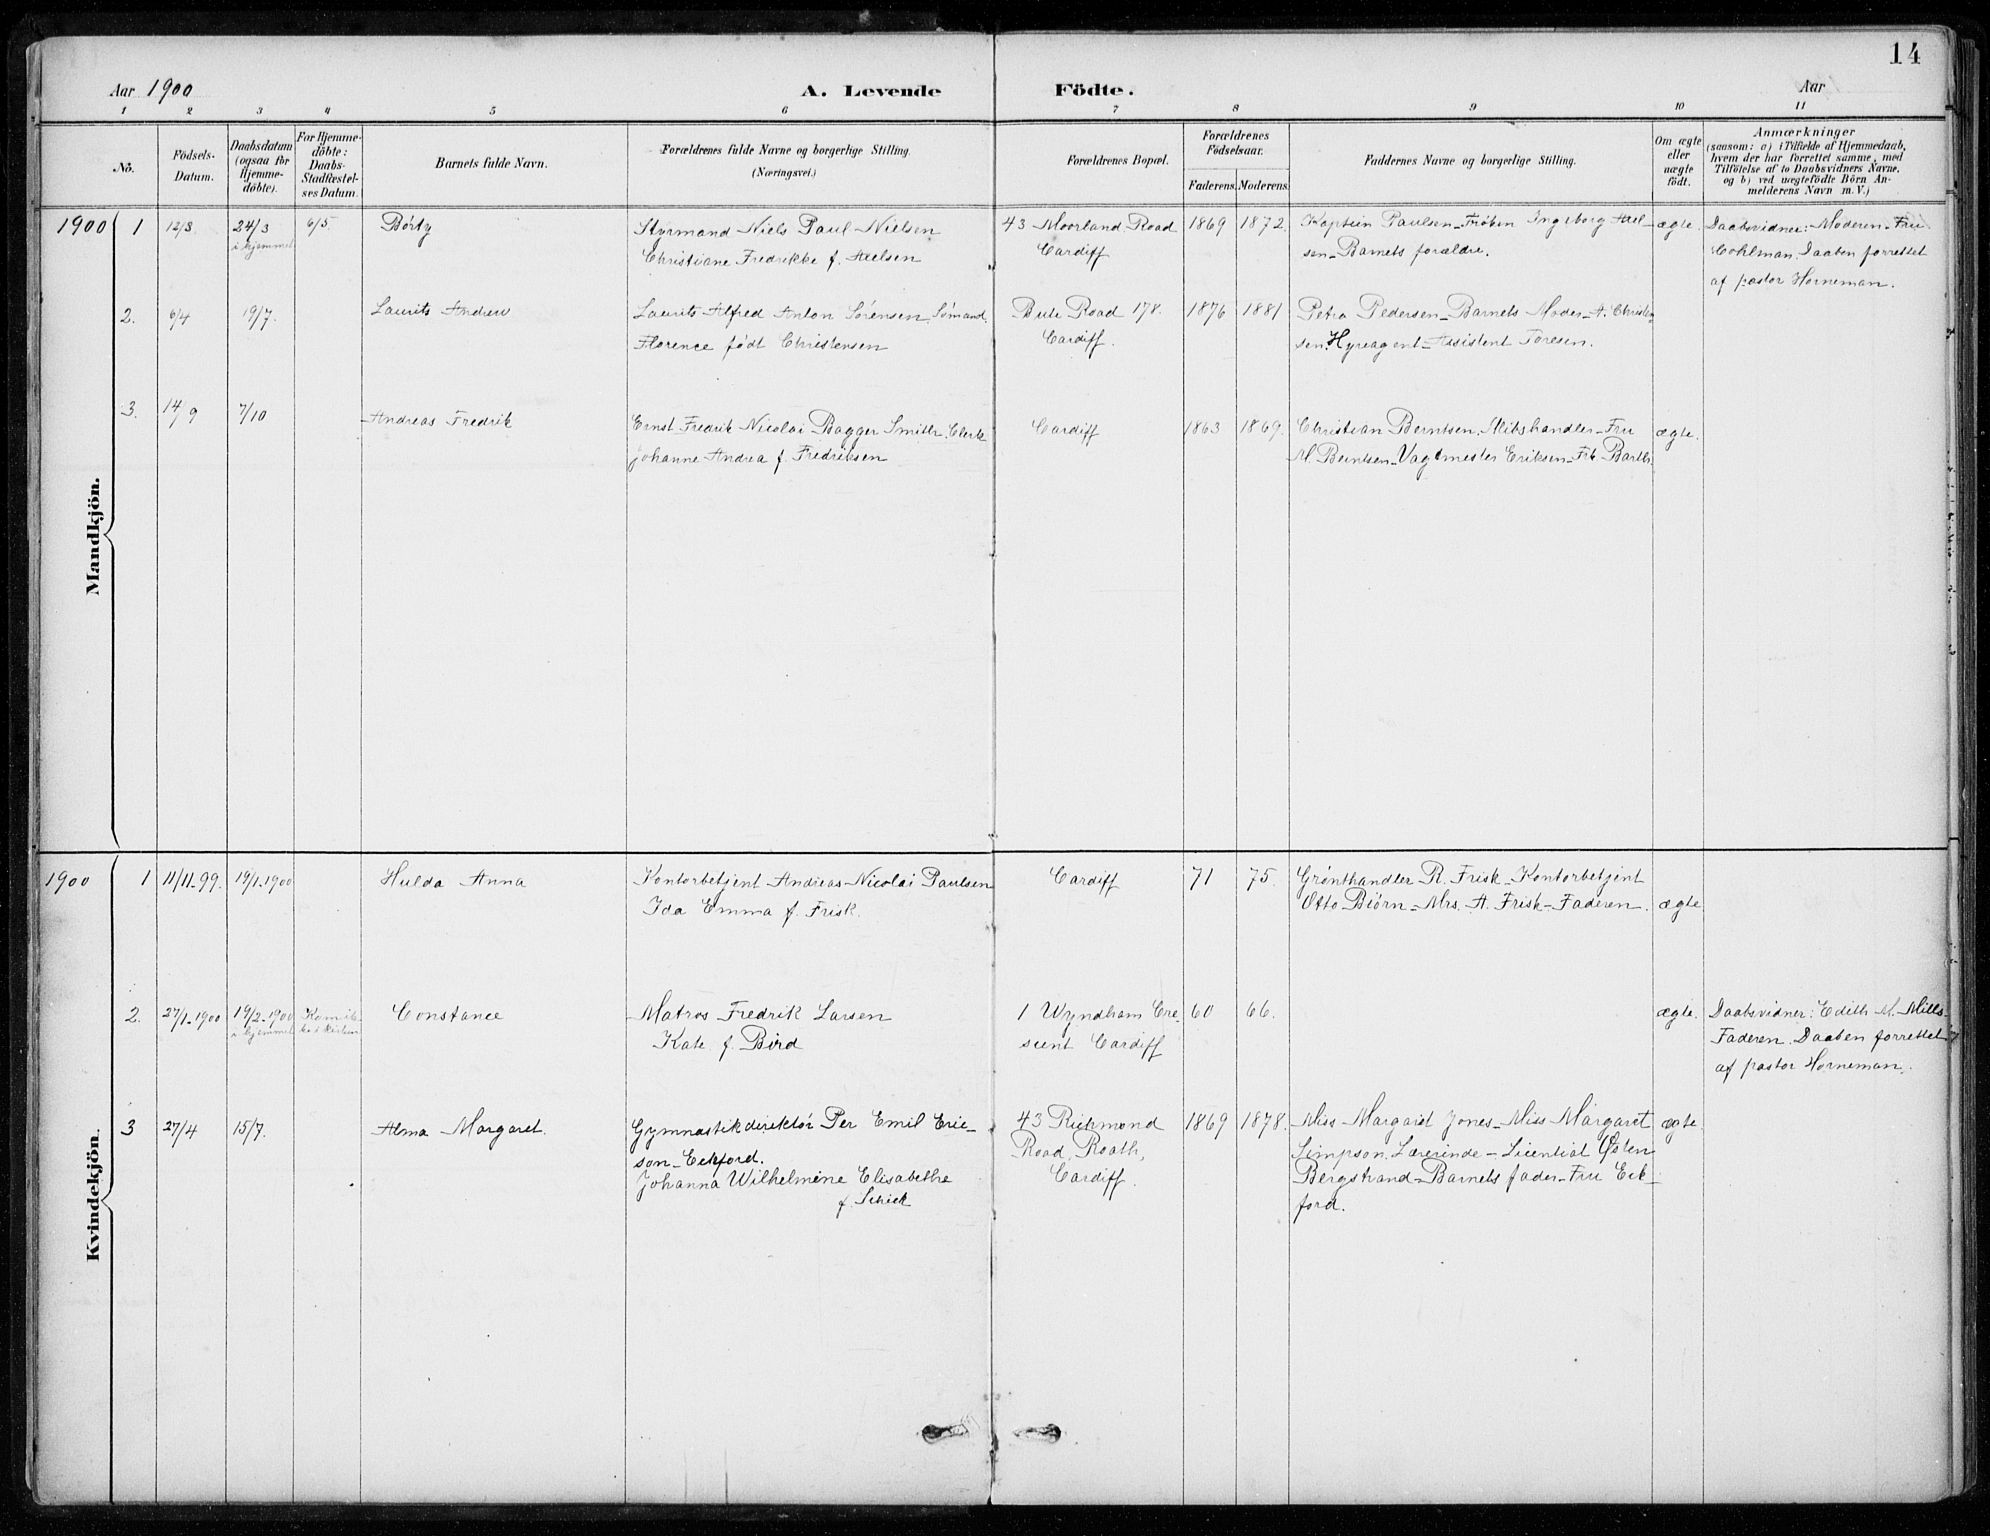 14
Aar 1900 A. Levende Födte. Aar
1 2 3 4 5 6 7 8 9 10 11
No.
Födsels-
Datum.
Daabsdatum
(ogsaa for
Hjemme-
döbte).
For Hjemme-
döbte:
Daabs-
Stadfæstel-
ses Datum.
Barnets fulde Navn.
Forældrenes fulde Navne og borgerlige Stilling.
(Næringsvei.)
Forældrenes Bopæl.
Forældrenes
Födselsaar.
Faderens. Moderens.
Faddernes Navne og borgerlige Stilling.
Om ægte
eller
uægte
födt.
Anmærkninger
(saasom: a) i Tilfælde af Hjemmedaab,
hvem der har forrettet samme, med
Tilföielse af to Daabsvidners Navne.
og b) ved uægtefödte Börn An-
melderens Navn m. V.)
Mandkjön.
1900 1 12/3 24/3 6/5
i hjemmet
Styrmand Niels Paul Nielsen
Christiane Fredrikke f. Axelsen
43 Moorland Road
Cardiff
1869 1872.
Kaptein Paulsen - Frøken Ingeborg Axel-
sen - Barnets forældre.
ægte.
Daabsvidner: Moderen - Fru
Cohlman. Daaben forrettet
af pastor Horneman.
2. 6/4 19/7.
Laurits Andrew
Laurits Alfred Anton Sørensen, Sømand.
Florence født Christensen
Bute Road 178.
Cardiff.
1876 1881
Petra Pedersen - Barnets Moder - A. Christen-
sen. Hyreagent - Assistent Toresen.
3. 14/9 7/10
Andreas Fredrik
Ernst Fredrik Nicolai Bagger Smith, Clerk
Johanne Andrea f. Fredriksen
Cardiff
1863 1869.
Christian Berntsen, Skibshandler - Fru
M. Berntsen - Vagtmester Eriksen - Frk. Barth.
ægte.
Kvindekjön.
1900 1 11/11-99. 19/1-1900
Hulda Anna
Kontorbetjent Andreas Nicolai Paulsen
Ida Emma f. Frisk.
Cardiff
71 75.
Grønthandler R. Frisk - Kontorbetjent
Otto Biörn - Mrs. A. Frisk - Faderen.
ægte
2. 27/1-1900 19/2-1900
i hjemmet
Constance
Matros Fredrik Larsen
Kate f. Bird
1 Wyndham Cre-
scent Cardiff
60 66.
ægte.
Daabsvidner: Edith M. Mills-
Faderen. Daaben forrettet
af pastor Horneman.
3 27/4 15/7.
Alma Margaret.
Gymnastikdirektör Per Emil Eric-
son-Eckford.
Johanna Wilhelmine Elisabethe
f. Schick
43 Richmond
Road, Roath,
Cardiff.
1869 1878.
Miss Margaret Jones - Miss Margaret
Simpson. Lærerinde - Licentiat Østen
Bergstrand - Barnets fader - Fru Eck-
ford.
ægte.